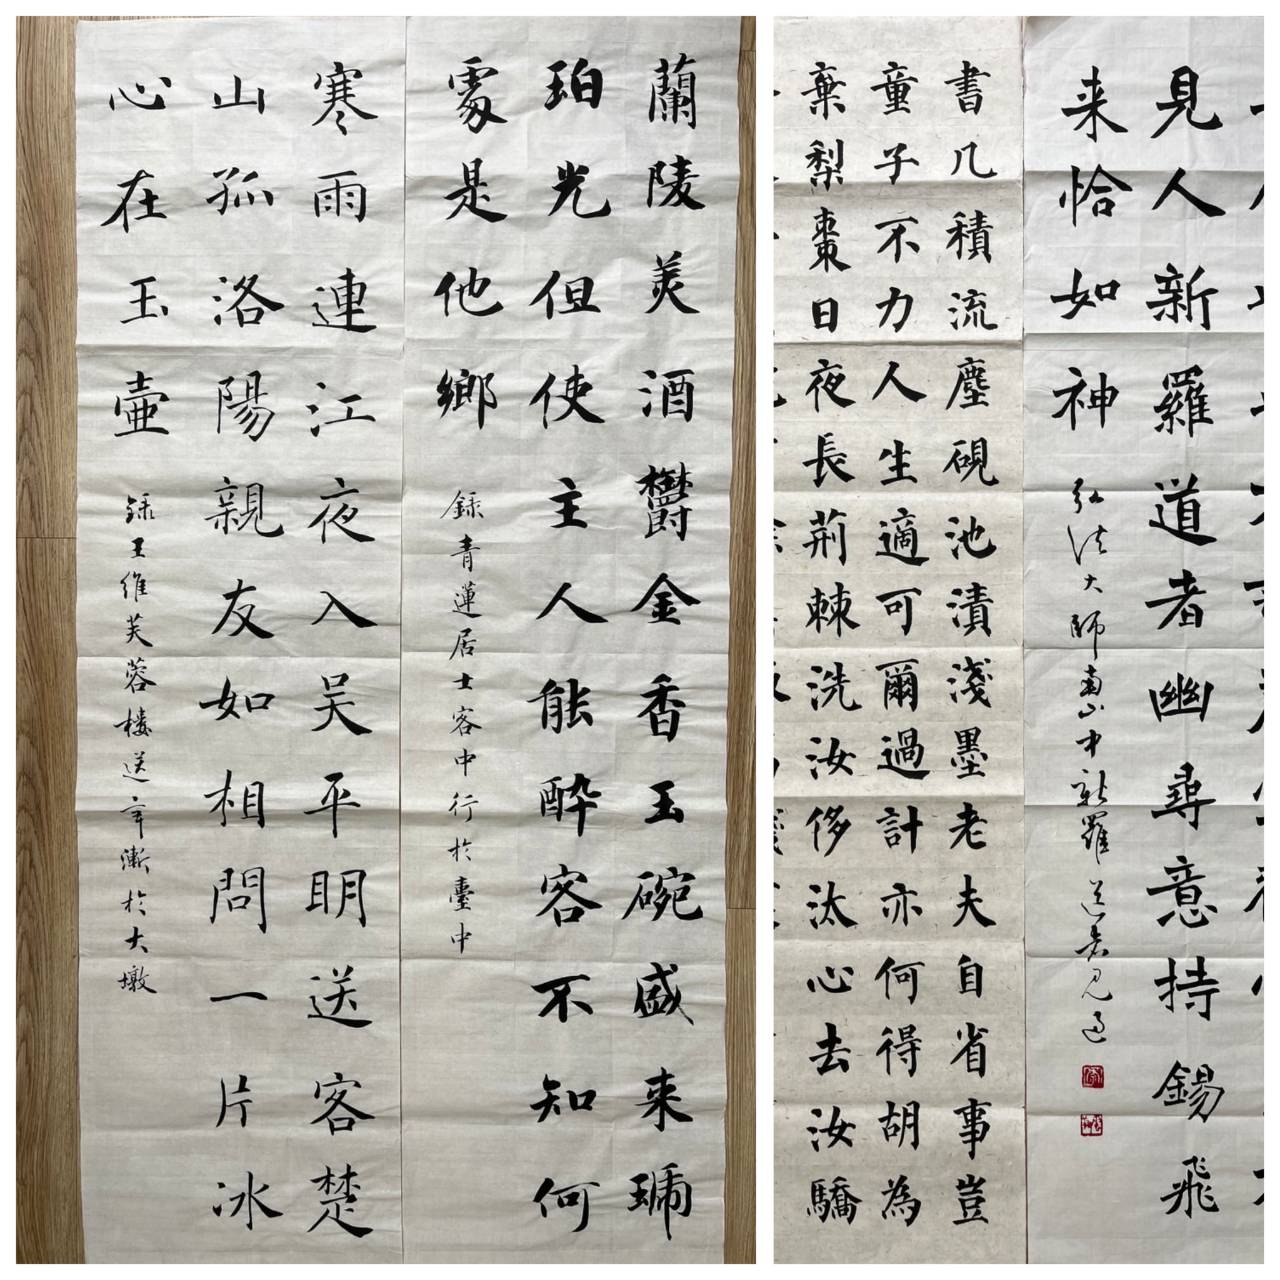 蘭陵美酒鬱金香玉碗盛来琥
珀光但使主人能醉客不知何
處是他鄉
錄青蓮居士客中行於臺中
寒雨連江夜入吴平明送客楚
山孤洛陽親友如相問一片冰
心在玉壺
錄王維芙蓉樓送辛漸於大墩
見人新羅道者幽尋意持錫飛
来恰如神
弘法大師南山中新羅道者見過
書几積流塵硯池漬淺墨老夫自省事豈
童子不力人生適可爾過計亦何得胡為
棄梨棗日夜長荆棘洗汝侈汰心去汝驕